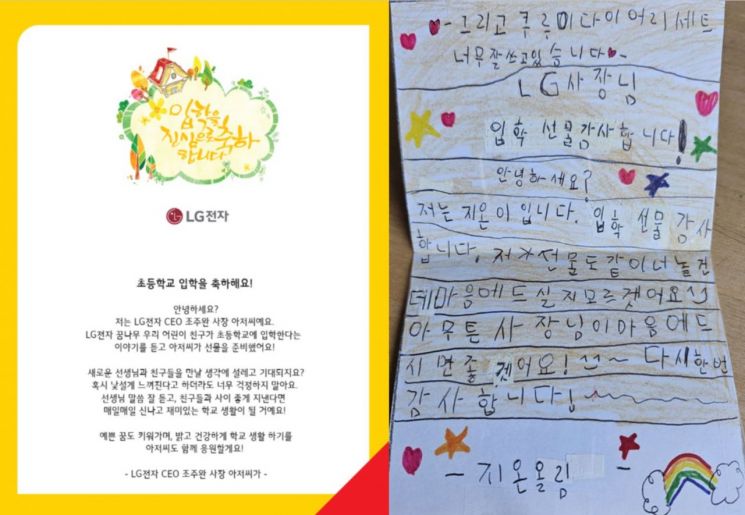 입학을
진심으로 축하
합니다
LG전자
초등학교 입학을 축하해요!
안녕하세요?
저는 LG전자 CEO 조주완 사장 아저씨예요.
LG전자 꿈나무 우리 어린이 친구가 초등학교에 입학한다는
이야기를 듣고 아저씨가 선물을 준비했어요!
새로운 선생님과 친구들을 만날 생각에 설레고 기대되지요?
혹시 낯설게 느껴진다고 하더라도 너무 걱정하지 말아요.
선생님 말씀 잘 듣고, 친구들과 사이 좋게 지낸다면
매일매일 신나고 재미있는 학교 생활이 될 거예요!
예쁜 꿈도 키워가며, 밝고 건강하게 학교 생활 하기를
아저씨도 함께 응원할게요!
- LG전자 CEO 조주완 사장 아저씨가 -
- 그리고 쿠루미다이어리세트
너무잘쓰고있습니다
LG사장님
입학 선물감사합니다!
안녕하세요?
저는 지온이입니다. 입학 선물 감사
합니다. 저 선물도 같이 너 늘건
데마음에드실지모르겠어요
아무튼사장님이마음에드
시면좋겠어요! ~ 다시한번
감사합니다!
- 지온올림 -